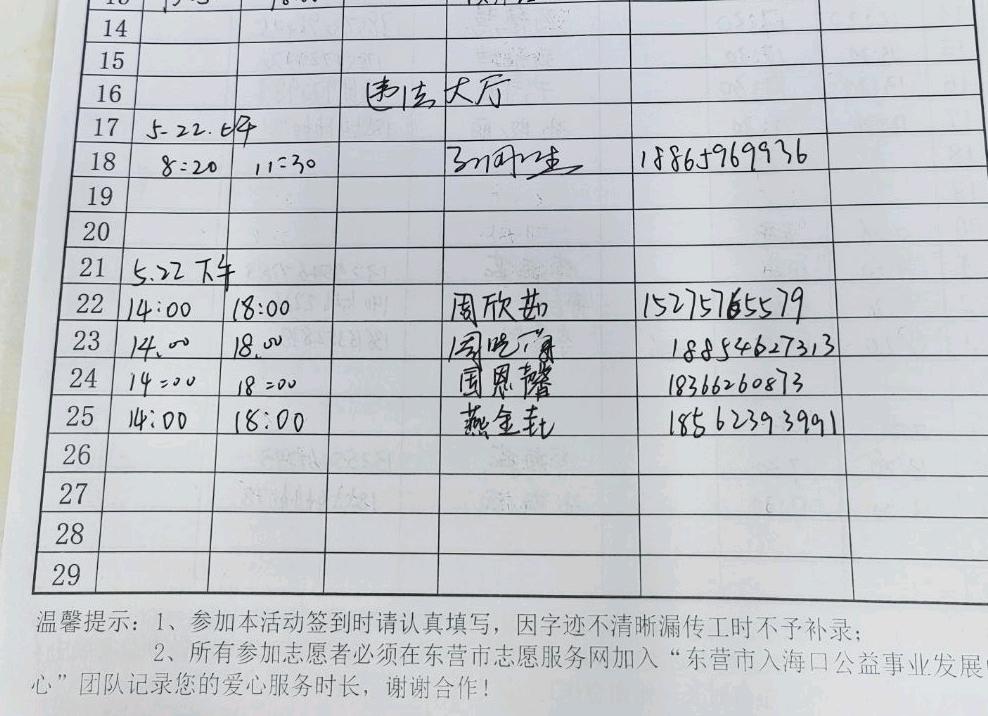 14
15
16 违法大厅
17 5-22.上午
18 8:20 11:30 18865969936
19
20
21 5.22 下午
22 14:00 18:00 周欣茹 15275765579
23 14.00 18.00 18854627313
24 14:00 18:00 国恩馨 18366260873
25 14:00 18:00 燕金 18562393991
26
27
28
29
温馨提示：1、参加本活动签到时请认真填写，因字迹不清晰漏传工时不予补录；
2、所有参加志愿者必须在东营市志愿服务网加入“东营市入海口公益事业发展
心”团队记录您的爱心服务时长，谢谢合作！